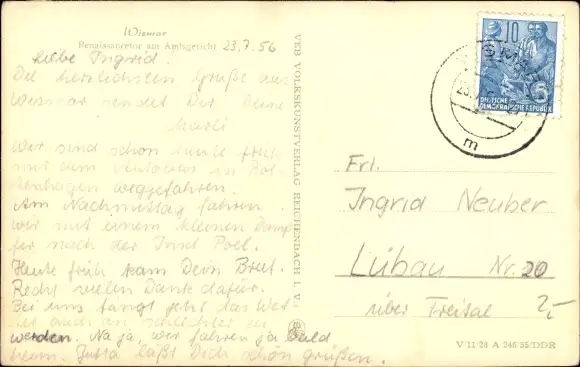 Wismar
Renaissancetor am Amtsgericht 23.7.56
Liebe Ingrid!
Die herzlichsten Grüße aus
Wismar sendet Dir Deine
Wir sind schon heute früh
mit dem Autobus in
weggefahren.
Am Nachmittag fahren
wir mit einem kleinen Damp
fer nach der Insel Poel.
Heute früh kam Dein Brief.
Recht vielen Dank dafür.
Bei uns fängt jetzt das Wet-
ter auch an schlechter zu
werden. Na ja, wir fahren ja bald
heim. Jutta läßt Dich schön grüßen.
VEB VOLKSKUNSTVERLAG REICHENBACH I. V.
10
DEUTSCHE
DEMOKRATISCHE REPUBLIK
5
m
Frl.
Ingrid Neuber
Lübau Nr. 20
über Freital 2,-
V 11/28 A 246/55/DDR